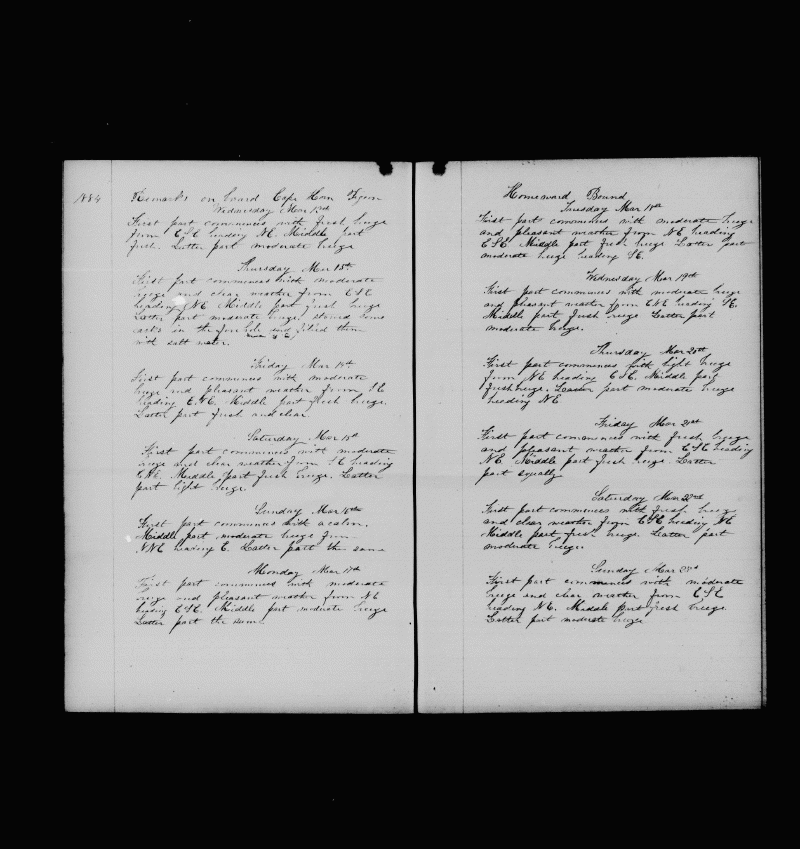 1884
Remarks on board Cape Horn Pigeon
Wednesday Mar 12th
First part commences with fresh breeze
from ESE heading NE. Middle part
fresh. Latter part moderate breeze
Thursday Mar 13th
First part commences with moderate
breeze and clear weather from ESE
heading NE Middle part fresh breeze
Latter part moderate breeze, stowed some
casks in the fore hole and filled them
with salt water.
Friday Mar 14th
First part commences with moderate
breeze and pleasant weather from SE
heading ENE. Middle part fresh breeze.
Latter part fresh and clear
Saturday Mar 15th
First part commences with moderate
breeze and clear weather from SE heading
ENE. Middle part fresh breeze. Latter
part light breeze.
Sunday Mar 16th
First part commences with a calm.
Middle part moderate breeze from
NNE heading E. Latter part the same
Monday Mar 17th
First part commences with moderate
breeze and pleasant weather from NE
heading ESE. Middle part moderate breeze
Latter part the same
Homeward Bound
Tuesday Mar 18th
First part commences with moderate breeze
and pleasant weather from NE heading
ESE Middle part fresh breeze Latter part
moderate breeze heading SE.
Wednesday Mar 19th
First part commences with moderate breeze
and pleasant weather from ENE heading SE.
Middle part fresh breeze Latter part
moderate breeze.
Thursday Mar 20th
First part commences with light breeze
from NE heading ESE. Middle part
fresh breeze. Latter part moderate breeze
heading NE
Friday Mar 21st
First part commences with fresh breeze
and pleasant weather from ESE heading
NE Middle part fresh breeze. Latter
part squally
Saturday Mar 22nd
First part commences with fresh breeze
and clear weather from ESE heading NE
Middle part fresh breeze. Latter part
moderate breeze.
Sunday Mar 23d
First part commences with moderate
breeze and clear weather from ESE
heading NE. Middle part fresh breeze
Latter part moderate breeze